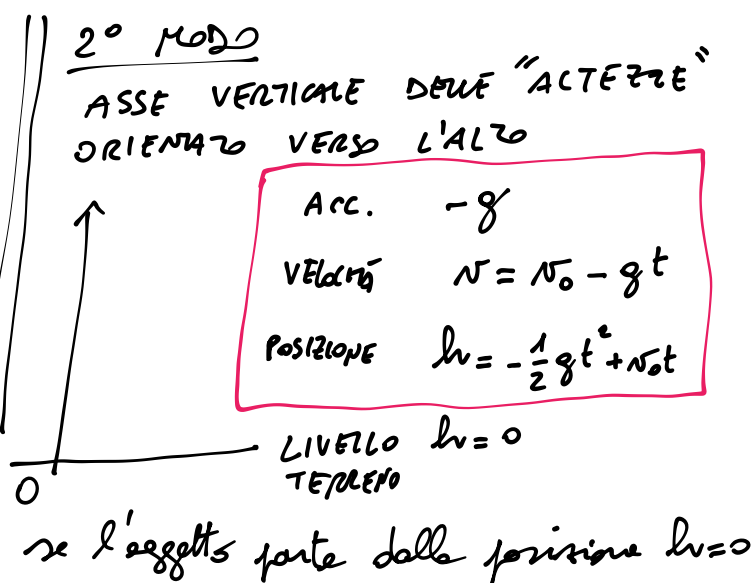 2° MODO
ASSE VERTICALE DELLE "ALTEZZE"
ORIENTATO VERSO L'ALTO
ACC. -g
VELOCITÀ v = v₀ - gt
POSIZIONE h = -1/2 gt² + v₀t
LIVELLO h = 0
TERRENO
0
se l'oggetto parte dalla posizione h=0